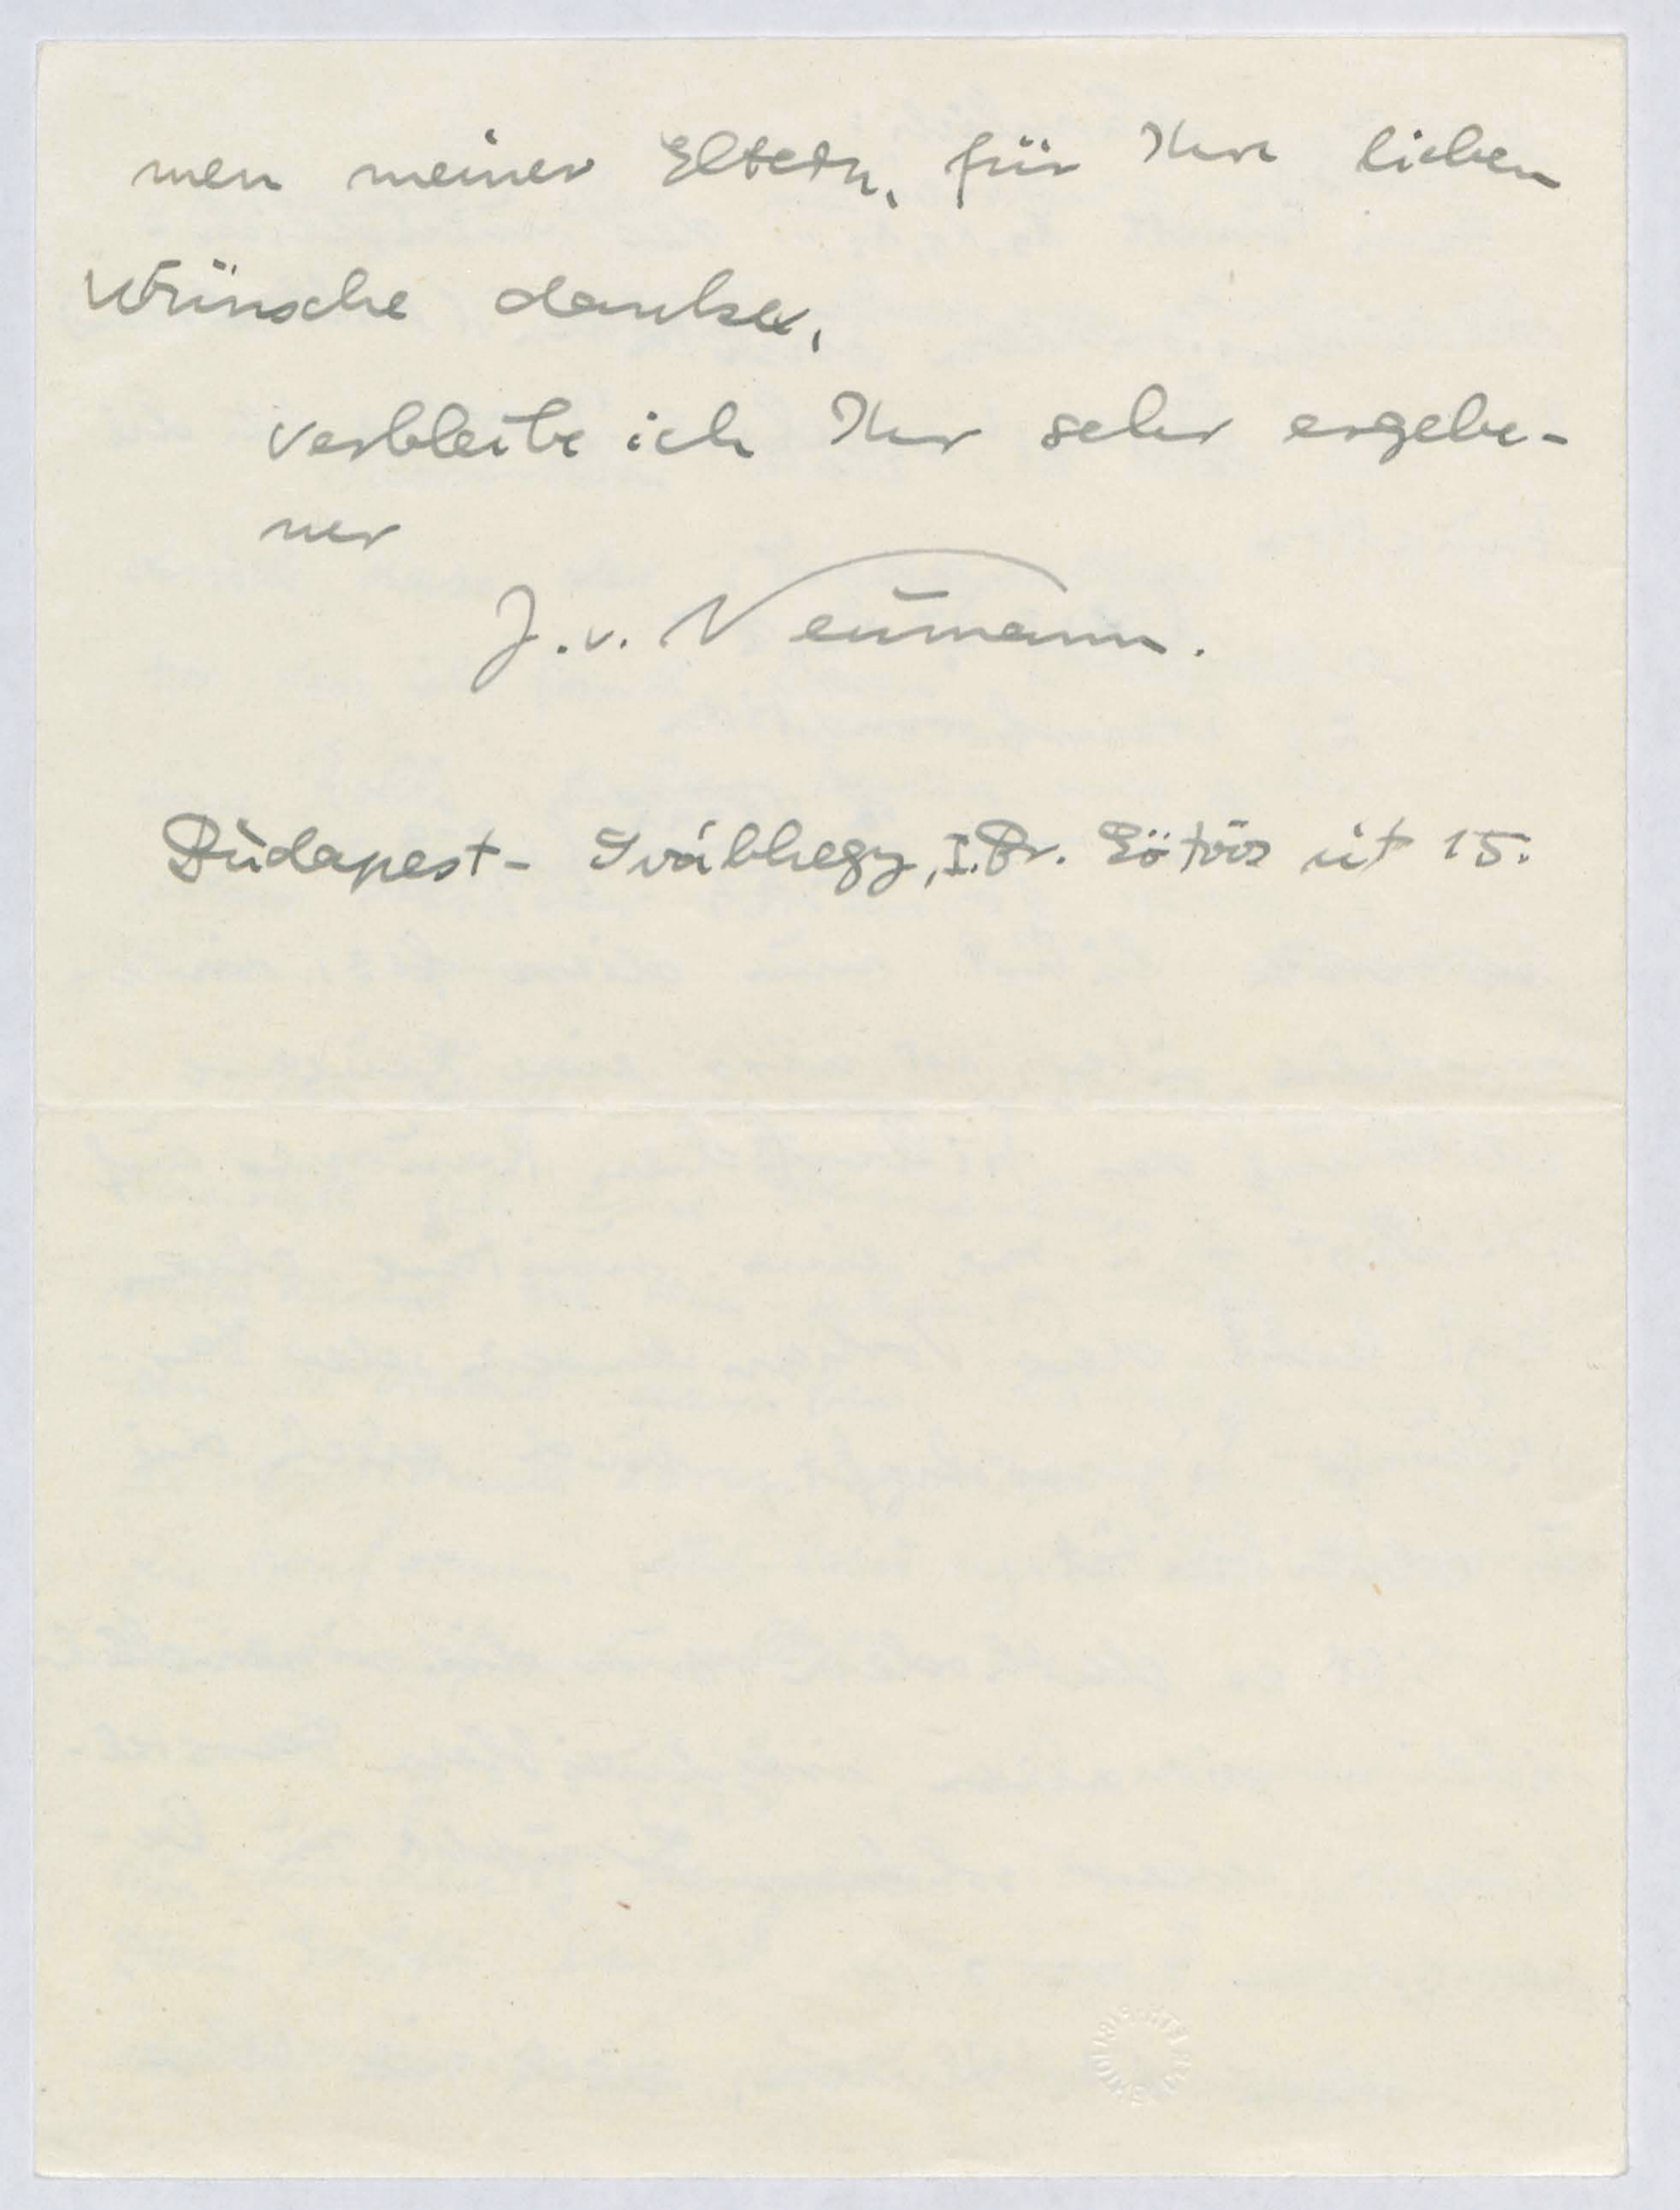 men meiner Eltern, für Ihre lieben
Wünsche danke,
verbleibe ich Ihr sehr ergebe-
ner
J. v. Neumann.
Budapest - Svábhegy, I. Br. Eötvös út 15.